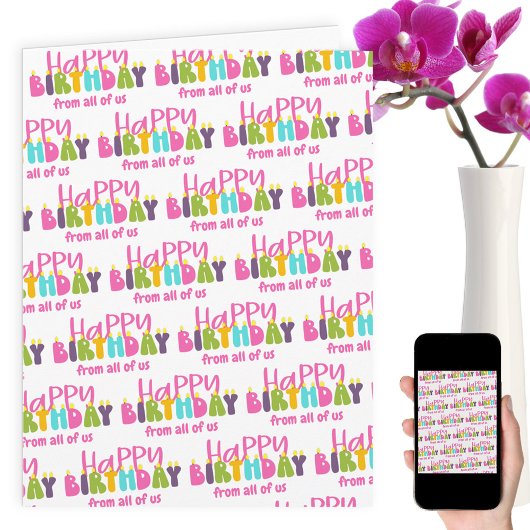 HaPPY HaPPY HaPPY
BIRTHDAY BIRTHDAY BIRTHD
from all of us from all of us from all of us
HaPPY HaPPY
HDAY BIRTHDAY BIRTHDAY
from all of us from all of us
HaPPY HaPPY HaPPY
BIRTHDAY BIRTHDAY BIRTH
from all of us from all of us from all of
HaPPY HaPPY
HDAY BIRTHDAY BIRTHDAY
from all of us from all of us
HaPPY HaPPY HaPPY
AY BIRTHDAY BIRTHDAY BIRT
from all of us from all of us from all
HaPPY HaPPY
HDAY BIRTHDAY BIRTHDAY
from all of us from all of us
HaPPY HaPPY
BIRTHDAY BIRTHDAY
from all of us
HaPPY
BIRTHDAY
from all of us
HaPPY
BIRTHDAY
from all of us